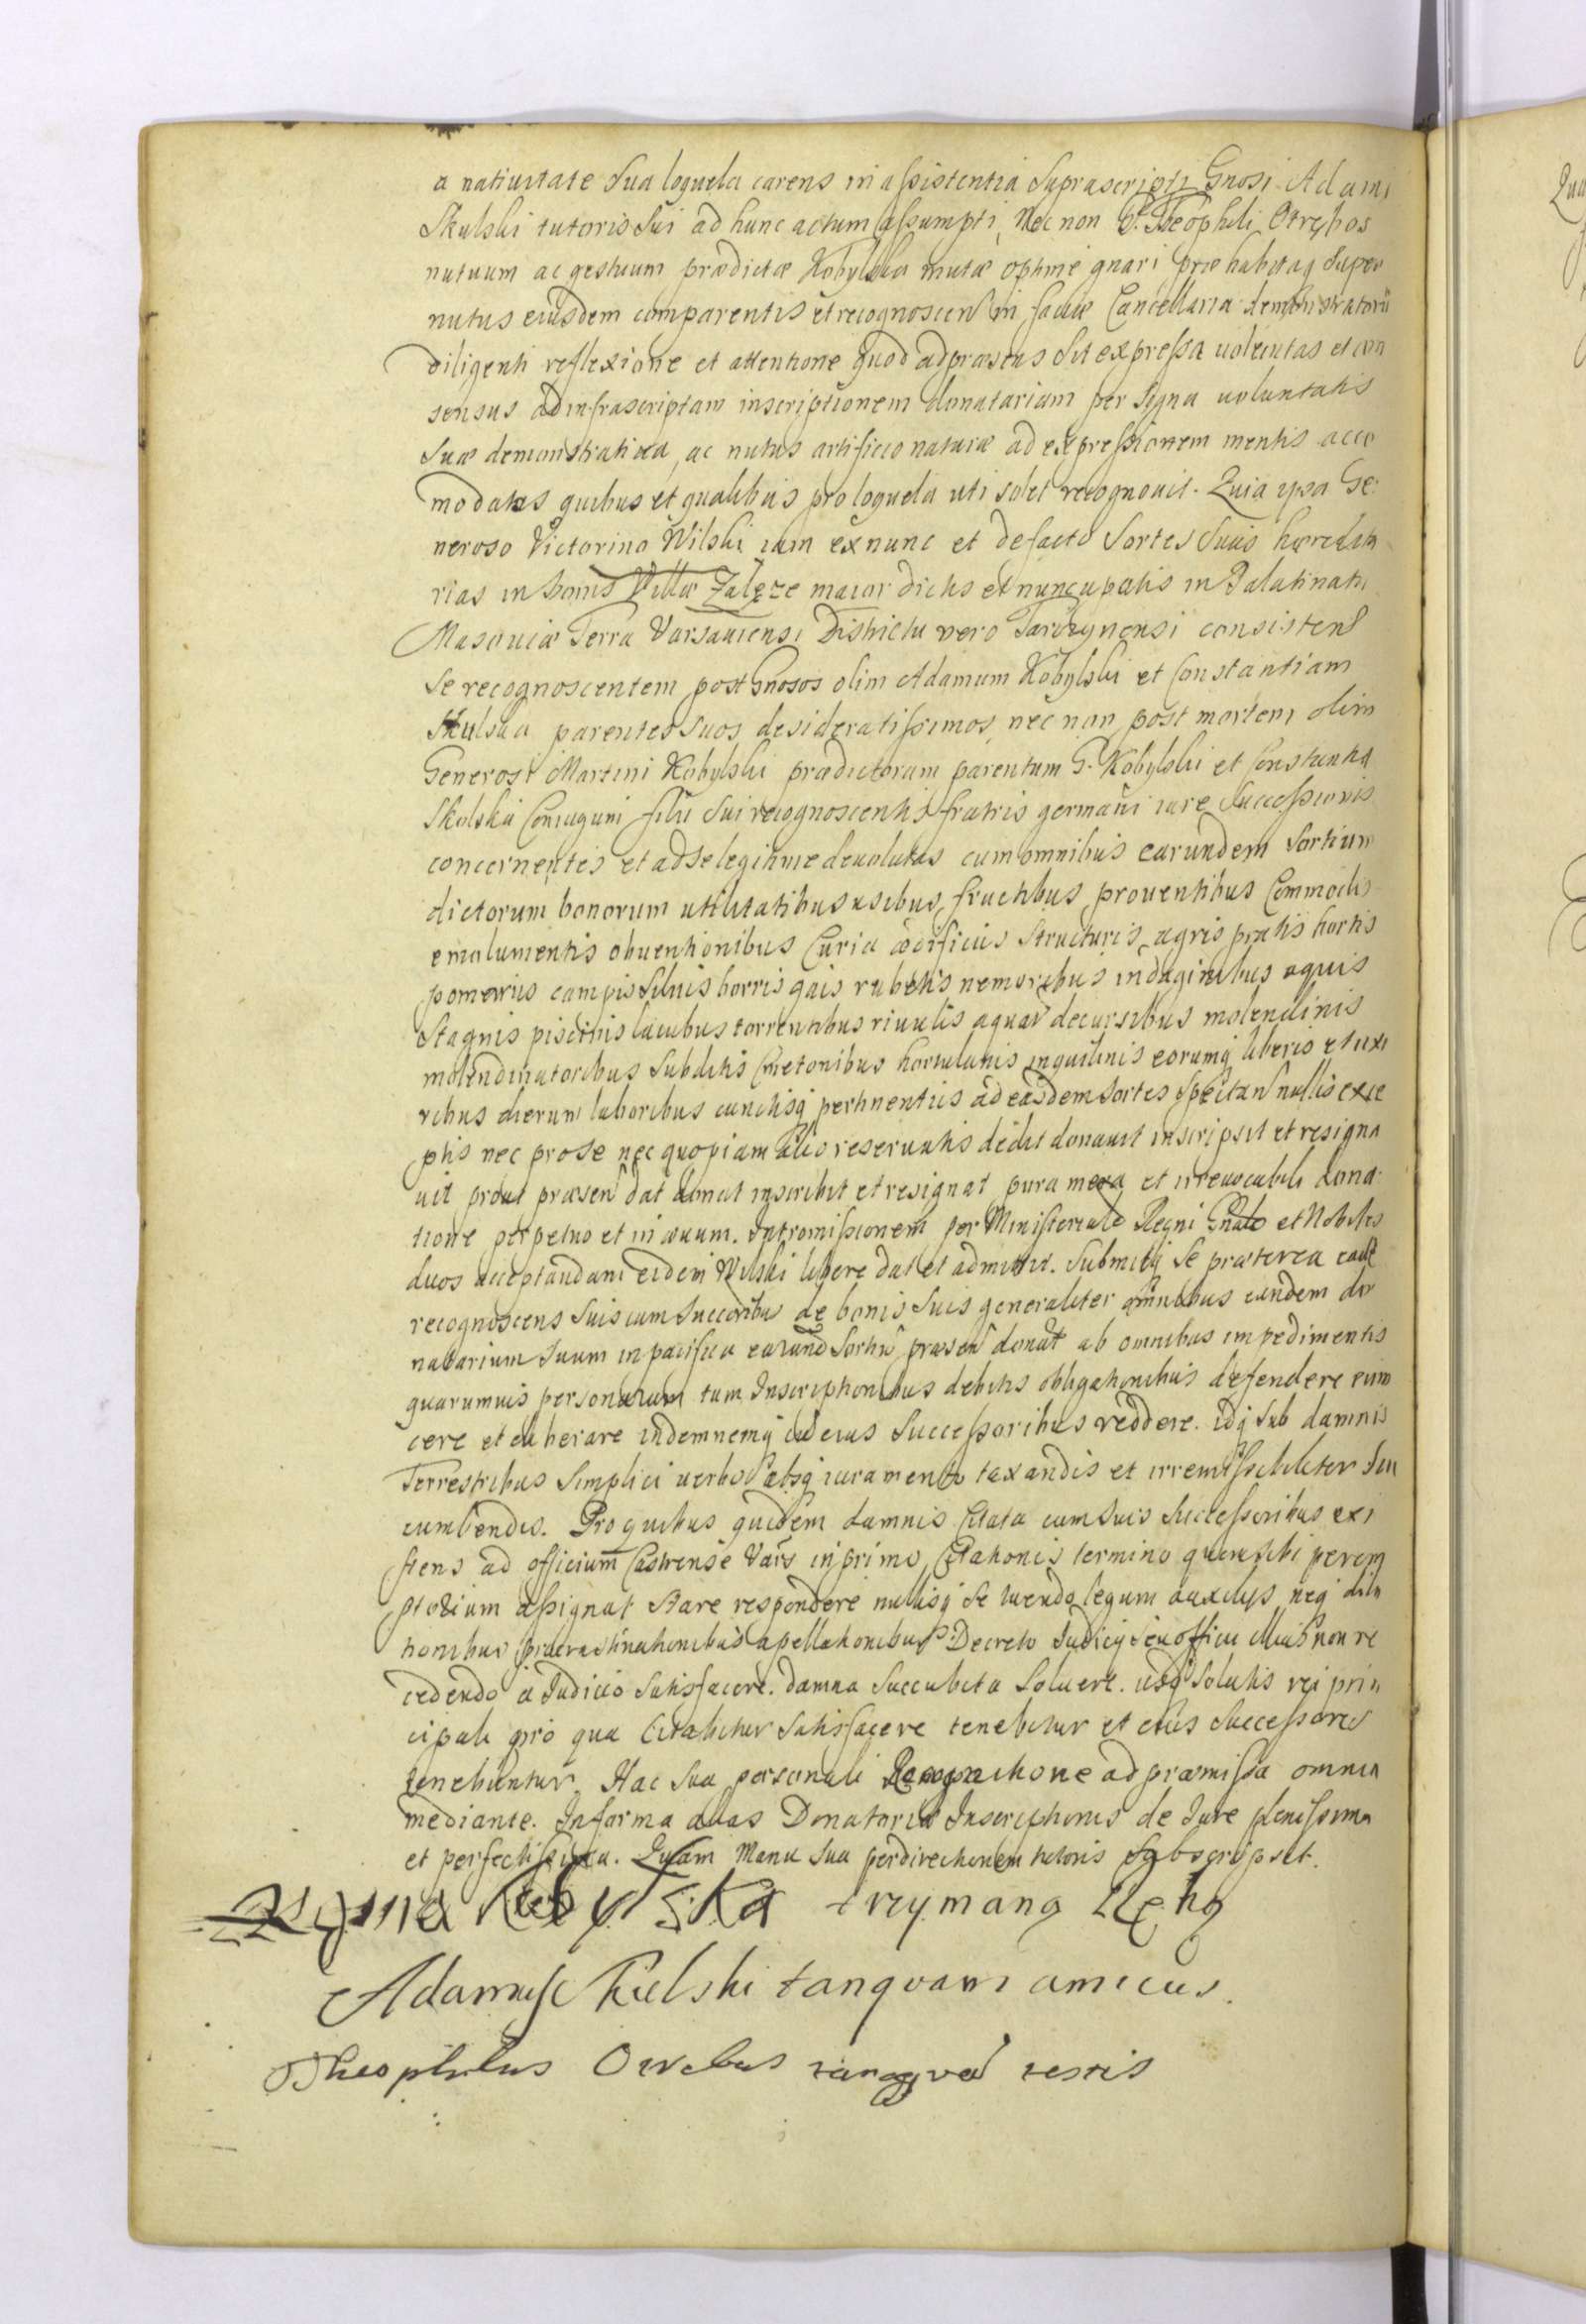 a natiuitate sua loquela carens in assistentia suprascripti Gnosi Adami
Skulski tutoris sui ad hunc actum assumpti, Nec non G. Theophili Otrębos
nutuum ac gestuum prædictæ Kobylska mutæ optime gnari præhabitaq super
nutus eiusdem comparentis et recognoscen in facie Cancellaria demonstratorii
diligenti reflexione et attentione quod ad præsens sit expressa uoluntas et con
sensus ad infrascriptam inscriptionem donatariam per signa uoluntatis
suæ demonstratiua, ac nutus artificio naturæ ad expressionem mentis acco
modatas quibus et qualibus pro loquela uti solet recognouit. Quia ipsa Ge
neroso Victorino Wilski iam ex nunc et de facto Sortes suas hæredita
rias in bonis Villæ Zalęze maior dictis et nuncupatis in Palatinatu
Masouiæ Terra Varsauiensi Districtu vero Tarczynensi consisten
se recognoscentem post Gnosos olim Adamum Kobylski et Constantiam
Skulska parentes suos desideratissimos, nec non post mortem olim
Generosi Martini Kobylski prædictorum parentum G. Kobylski et Constantia
Skulska Coniugum filii sui recognoscentis fratris germani iure successionis
concernentes et ad se legitime deuolutas cum omnibus earundem sortium
dictorum bonorum utilitatibus usibus, fructibus, prouentibus Commodis
emolumentis obuentionibus Curia ædificiis structuris, agris pratis hortis
pomeriis campis siluis borris gais rubetis nemoribus indaginibus aquis
stagnis piscinis lacubus torrentibus riuulis aquar decursibus molendinis
molendinatoribus subditis Cmetonibus hortulanis inquilinis eorumq liberis et uxo
ribus dierum laboribus cunctisq pertinentiis ad easdem sortes spectan nullis exce
ptis nec pro se nec quopiam alio reseruatis dedit donauit inscripsit et resigna
uit prout præsen dat donat inscribit et resignat pura mera et irreuocabili dona
tione perpetuo et in æuum. Intromissionem per Ministeriale Regni Gnale et Nobiles
duos acceptandam eidem Wilski libere dat et admittit. Submittq se præterea eade
recognoscens suis cum succoribus de bonis suis generaliter omnibus eundem do
natarium suum in pacifica earund sortiu præsen donat ab omnibus impedimentis
quarumuis personarum tam Inscriptionibus debitis obligationibus defendere euin
cere et eliberare indemnemq cu eius Successoribus reddere. idq sub damnis
Terrestribus simplici uerbo absq iuramento taxandis et irremissibiliter suc
cumbendis. Pro quibus quidem damnis Citata cum suis Successoribus exi
stens ad officium Castrense Vars in primo Citationis termino quem sibi perem
ptorium assignat stare respondere nullisq se tuendo legum auxiliis neq dila
tionibus procrastinationibus apellationibus Decreto Iudicij seu officii non re
cedendo a Iudicio satisfacere. damna succubita soluere. usq solutis rei prin
cipali pro qua Citabitur satisfacere tenebitur et eius Successores
tenebuntur. Hac sua personali Recognitione ad præmissa omnia
mediante. In forma alias Donatoriæ Inscriptionis de Iure plenissima
et perfectissima. Quam Manu sua per directionem tutoris subscripsit.
Kobylska trzymano Ręko
Adamus Skulski tanquam amicus.
Theophilus Otrebus tanqva testis